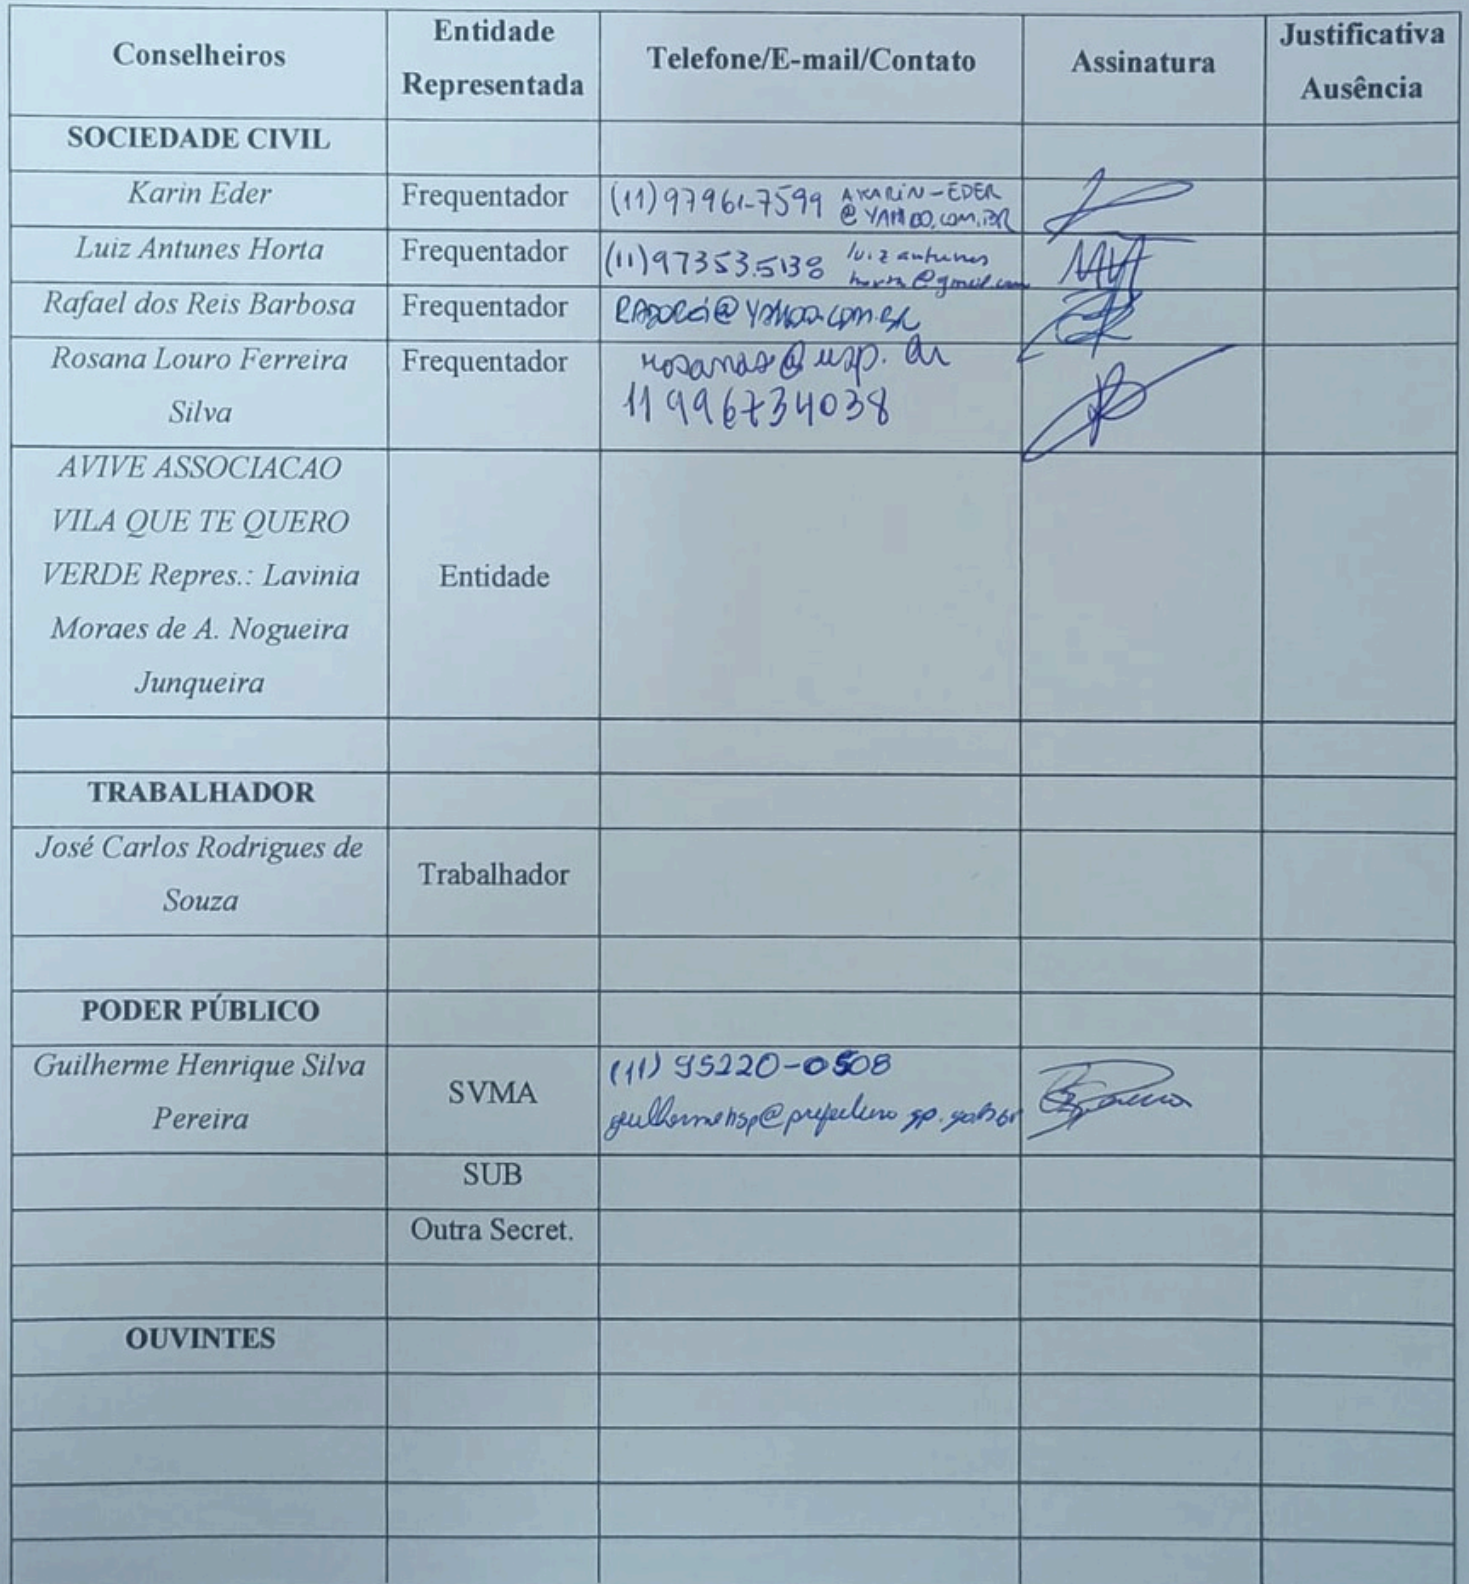 Conselheiros
Entidade
Representada
Telefone/E-mail/Contato
Assinatura
Justificativa
Ausência
SOCIEDADE CIVIL
Karin Eder
Frequentador
(11) 97961-7599 AKARIN-EDER
@YAHOO.COM.BR
Luiz Antunes Horta
Frequentador
(11) 97353.5138 luiz antunes
horta@gmail.com
Rafael dos Reis Barbosa
Frequentador
@YAHOO.COM.BR
Rosana Louro Ferreira
Silva
Frequentador
rosanas@usp.br
11 996734038
AVIVE ASSOCIACAO
VILA QUE TE QUERO
VERDE Repres.: Lavinia
Moraes de A. Nogueira
Junqueira
Entidade
TRABALHADOR
José Carlos Rodrigues de
Souza
Trabalhador
PODER PÚBLICO
Guilherme Henrique Silva
Pereira
SVMA
(11) 95220-0508
guilhermehsp@prefeitura.sp.gov.br
SUB
Outra Secret.
OUVINTES